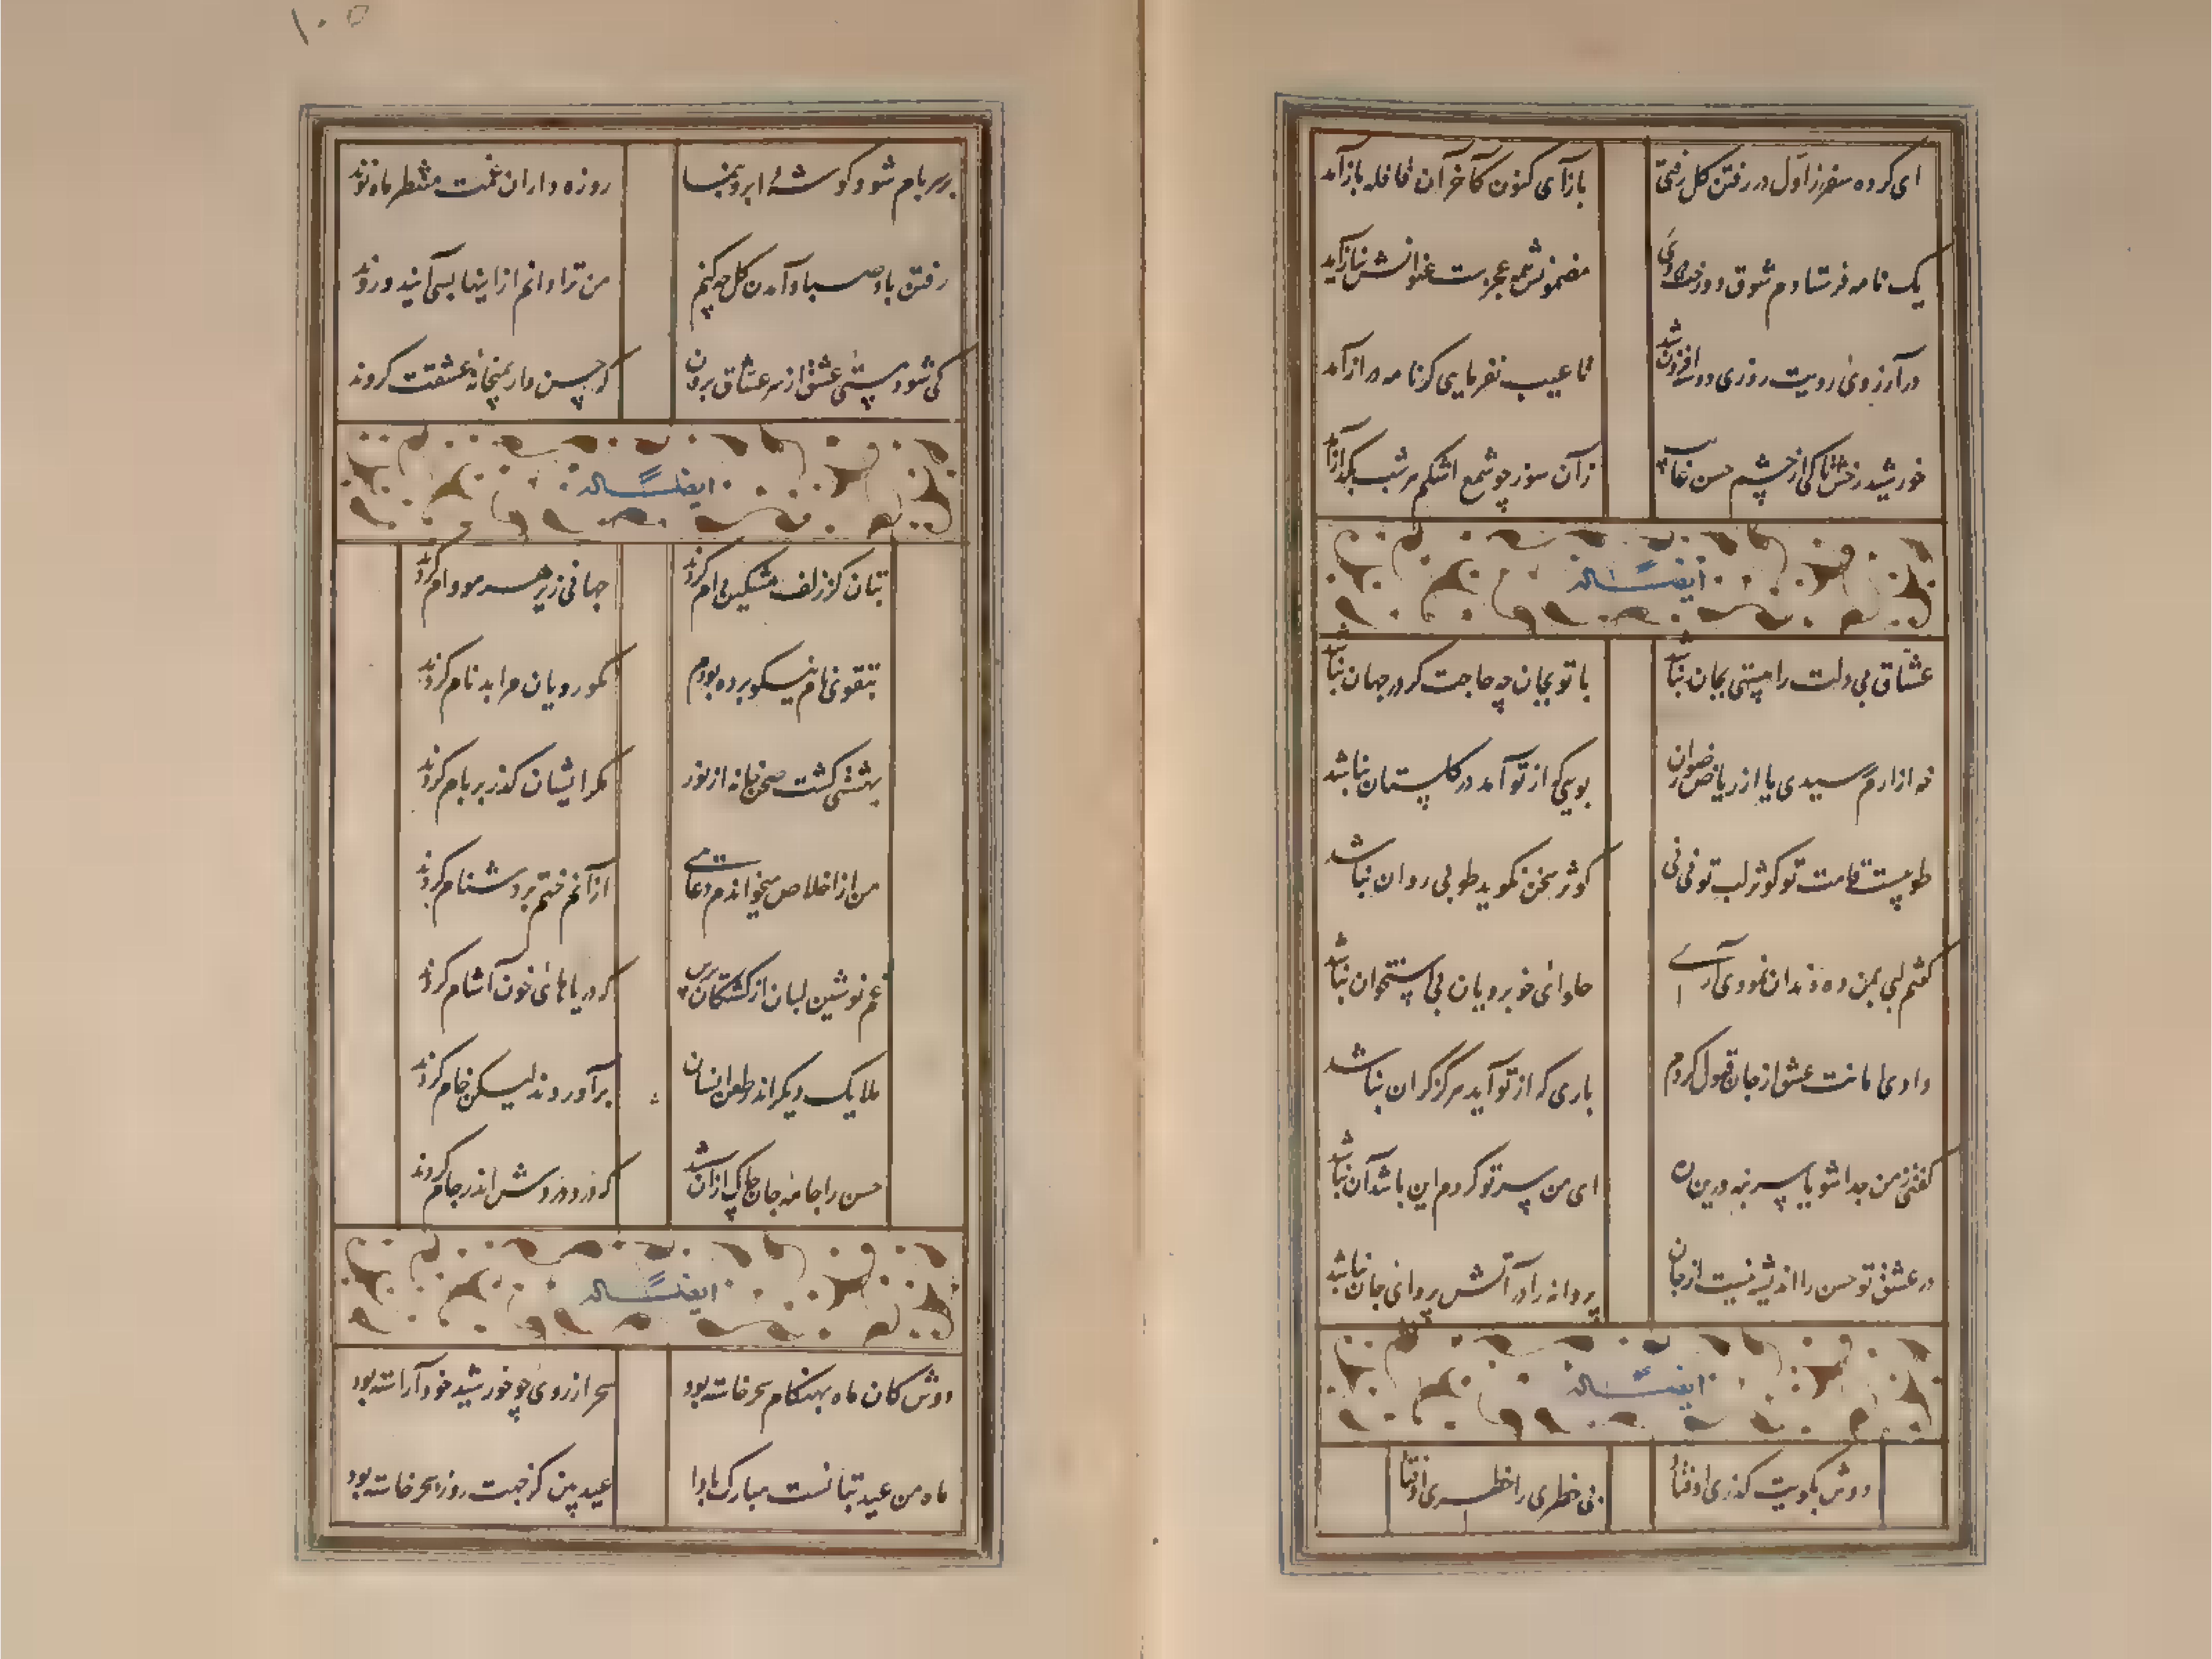 ای کرده سفر ز اول در رفتن کل رفتی
باز آی کنون کآخر آن قافله باز آمد
یک نامه فرستادم شوق و
مضمونش همه عجزست عنوانش نیاز آمد
در آرزوی رویت روزی دو سه افزون شد
تا عیب نفرمایی کر نامه دراز آمد
خورشید رخش تا کی از چشم حسن غایب
زآن سوز چو شمع اشکم هر شب بکداز آمد
ایضاً له
عشاق بی دلت را میلی بجان نباشد
با تو بجان چه حاجت کر در جهان نباشد
نه از ارم رسیدی یا از ریاض رضوان
بویی که از تو آمد در کلستان نباشد
طوبیست قامت تو کوثر لب تو نی نی
کوثر سخن نکوید طوبی روان نباشد
کفتم لبی بمن ده دندان نمودی آری
حلوای خوبرویان بی استخوان نباشد
دادی امانت عشق از جان قبول کردم
باری که از تو آید هرکز کران نباشد
کفتی ز من جدا شو یا سر بنه درین ره
ای من سر تو کردم این باشد آن نباشد
در عشق تو حسن را اندیشه نیست از جان
پروانه را در آتش پروای جان نباشد
ایضاً له
دوش بکویت کذری اوفتاد
بی خطری را خطری اوفتاد
۱۰۵
بر سر بام شو و کوشهٔ ابرو بنما
روزه داران غمت منتظر ماه نوند
رفتن باد صبا و آمدن کل چه کنم
من ترا دانم ازاینها بسی آیند و روند
کی شود مستی عشق از سر عشاق برون
کر حسن وار بمیخانهٔ عشقت کروند
ایضاً له
بتان کز زلف مشکین لام کردند
جهانی زیر هر مو دام کردند
بتقوی نام نیکو برده بودم
نکو رویان مرا بد نام کردند
بهشتی کشت صحن خانه از نور
مکر ایشان کذر بر بام کردند
من از اخلاص میخواندم دعایی
ازآنم ختم بر دشنام کردند
غم نوشین لبان از کشتکان پرس
که دریاهای خون آشام کردند
ملایک دیکر اندر طعن انسان
برآوردند لیکن خام کردند
حسن را جامهٔ جان چاک ازآن شد
که درد دردش اندر جام کردند
ایضاً له
دوش کان ماه بهنکام سحر خاسته بود
سحر از روی چو خورشید خود آراسته بود
ماه من عید بتانست مبارک بادا
عید بین کز جهت روز سحر خاسته بود